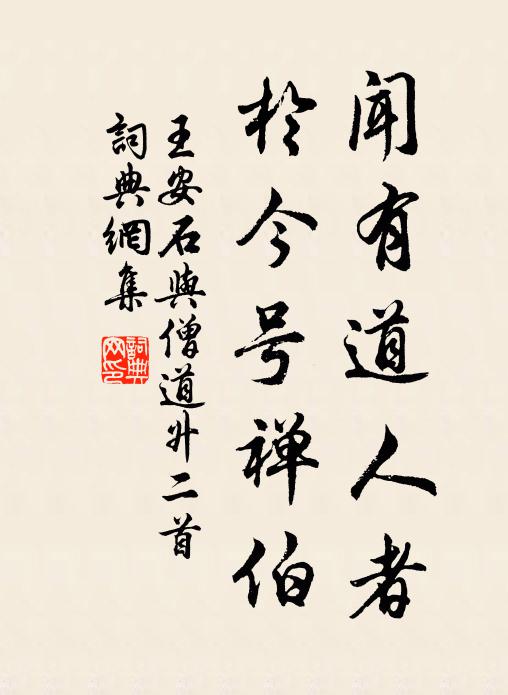 闻有道人者
於今号禅伯
王安石與僧道升二首
詞典網集
詞典網印